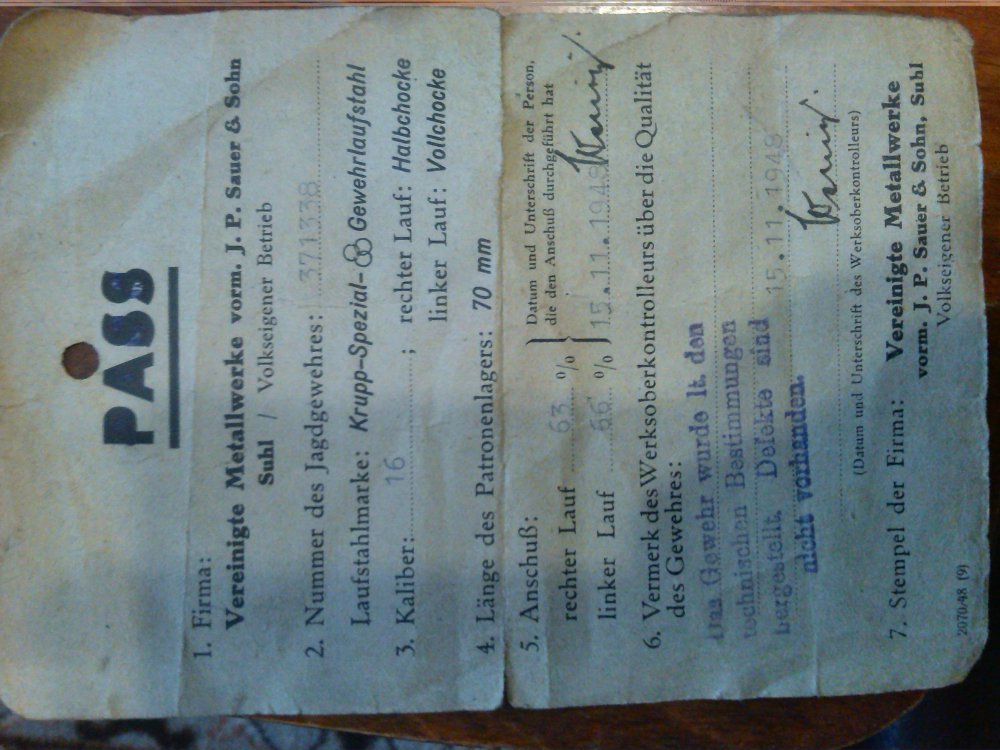 PASS
1. Firma:
Vereinigte Metallwerke vorm. J. P. Sauer & Sohn
Suhl / Volkseigener Betrieb
2. Nummer des Jagdgewehres: 371338
Laufstahlmarke: Krupp-Spezial- Gewehrlaufstahl
3. Kaliber: 16 ; rechter Lauf: Halbchocke
linker Lauf: Vollchocke
4. Länge des Patronenlagers: 70 mm
5. Anschuß:
Datum und Unterschrift der Person,
die den Anschuß durchgeführt hat
rechter Lauf 63 %
linker Lauf 66 % 15.11.1948
6. Vermerk des Werksoberkontrolleurs über die Qualität
des Gewehres:
Das Gewehr wurde lt. den
technischen Bestimmungen
hergestellt. Defekte sind
nicht vorhanden.
15.11.1948
(Datum und Unterschrift des Werksoberkontrolleurs)
7. Stempel der Firma: Vereinigte Metallwerke
vorm. J. P. Sauer & Sohn, Suhl
Volkseigener Betrieb
2070/48 (9)